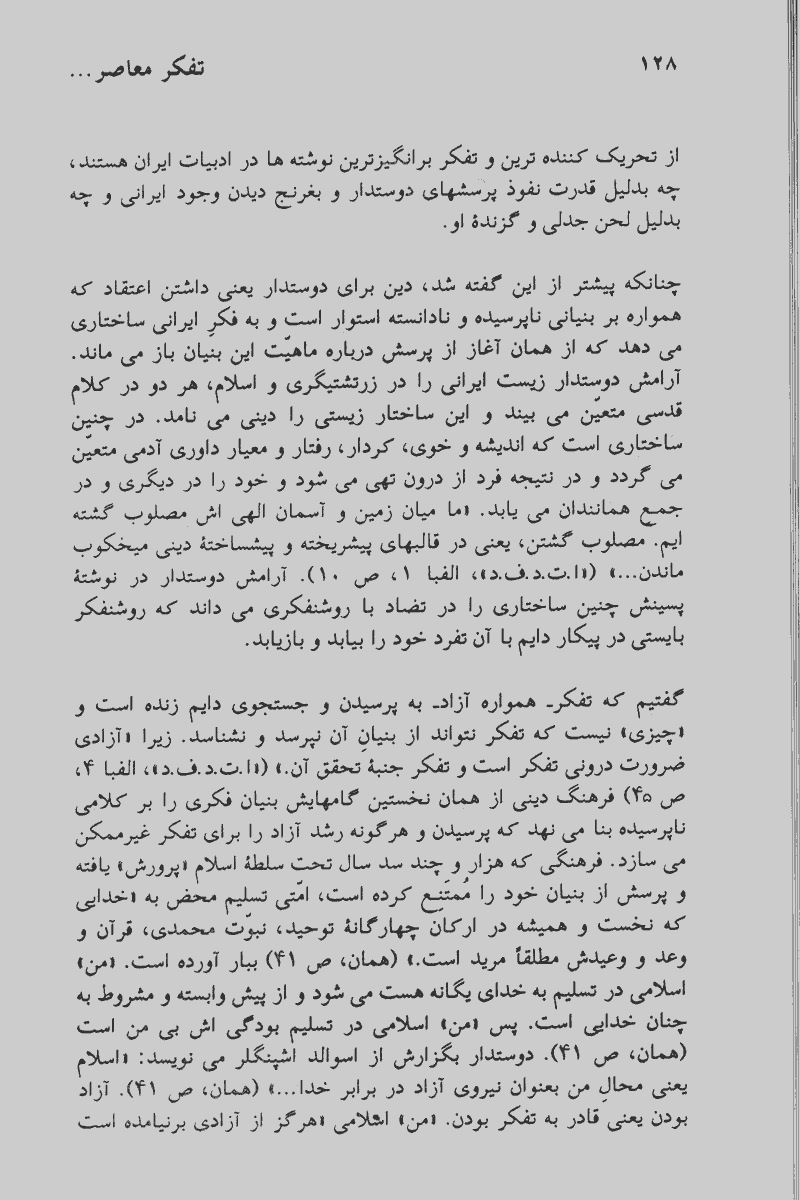 ۱۲۸
تفکر معاصر...
از تحریک کننده ترین و تفکر برانگیزترین نوشته ها در ادبیات ایران هستند،
چه بدلیل قدرت نفوذ پرسشهای دوستدار و بغرنج دیدن وجود ایرانی و چه
بدلیل لحن جدلی و گزندهٔ او.
چنانکه پیشتر از این گفته شد، دین برای دوستدار یعنی داشتن اعتقاد که
همواره بر بنیانی ناپرسیده و نادانسته استوار است و به فکرِ ایرانی ساختاری
می دهد که از همان آغاز از پرسش درباره ماهیّت این بنیان باز می ماند.
آرامش دوستدار زیست ایرانی را در زرتشتیگری و اسلام، هر دو در کلام
قدسی متعیّن می بیند و این ساختار زیستی را دینی می نامد. در چنین
ساختاری است که اندیشه و خوی، کردار، رفتار و معیار داوری آدمی متعیّن
می گردد و در نتیجه فرد از درون تهی می شود و خود را در دیگری و در
جمعِ همانندان می یابد. «ما میان زمین و آسمان الهی اش مصلوب گشته
ایم. مصلوب گشتن، یعنی در قالبهای پیشریخته و پیشساختهٔ دینی میخکوب
ماندن...» («ا.ت.د.ف.د»، الفبا ۱، ص ۱۰). آرامش دوستدار در نوشتهٔ
پسینش چنین ساختاری را در تضاد با روشنفکری می داند که روشنفکر
بایستی در پیکار دایم با آن تفرد خود را بیابد و بازیابد.
گفتیم که تفکرـ همواره آزادـ به پرسیدن و جستجوی دایم زنده است و
«چیزی» نیست که تفکر نتواند از بنیانِ آن نپرسد و نشناسد. زیرا «آزادی
ضرورت درونی تفکر است و تفکر جنبهٔ تحقق آن.» («ا.ت.د.ف.د»، الفبا ۴،
ص ۴۵) فرهنگ دینی از همان نخستین گامهایش بنیان فکری را بر کلامی
ناپرسیده بنا می نهد که پرسیدن و هرگونه رشد آزاد را برای تفکر غیرممکن
می سازد. فرهنگی که هزار و چند سد سال تحت سلطهٔ اسلام «پرورش» یافته
و پرسش از بنیان خود را مُمتَنِع کرده است، امّتی تسلیم محض به «خدایی
که نخست و همیشه در ارکان چهارگانهٔ توحید، نبوّت محمدی، قرآن و
وعد و وعیدش مطلقاً مرید است.» (همان، ص ۴۱) ببار آورده است. «من»
اسلامی در تسلیم به خدای یگانه هست می شود و از پیش وابسته و مشروط به
چنان خدایی است. پس «من» اسلامی در تسلیم بودگی اش بی من است
(همان، ص ۴۱). دوستدار بگزارش از اسوالد اشپنگلر می نویسد: «اسلام
یعنی محالِ من بعنوان نیروی آزاد در برابر خدا...» (همان، ص ۴۱). آزاد
بودن یعنی قادر به تفکر بودن. «من» اسلامی «هرگز از آزادی برنیامده است